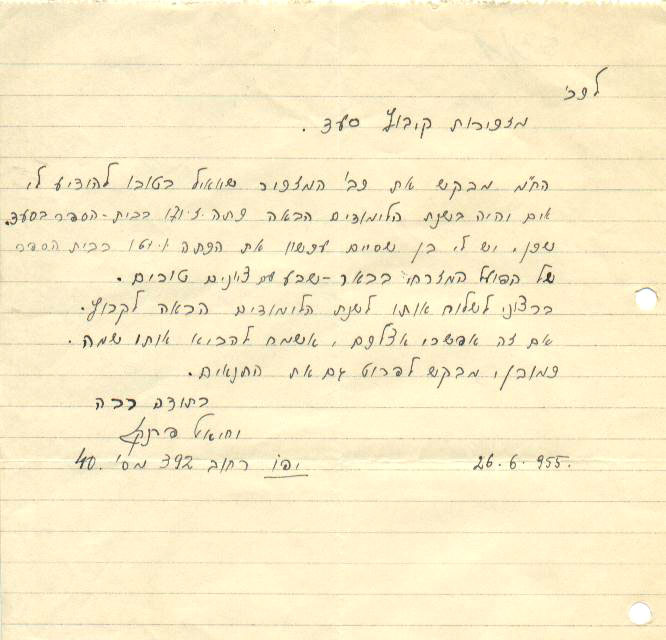 לכב'
מזכירות קיבוץ סעד.
הח"מ מבקש את כב' המזכיר שיואיל בטובו להודיע לי
אים יהיה בשנת הלימודים הבאה כתה בבית-הספר בסעד.
שכן, יש לי בן שסיים עכשו את הכתה בבית הספר
של הפועל המזרחי בבאר-שבע עם ציונים טובים.
ברצוני לשלוח אותו לשנת הלימודים הבאה לקבוץ.
אם זה אפשרי אצלכם, אשמח להביא אותו שמה.
כמובן, מבקש לפרוט גם את התנאים.
בתודה רבה
יחיאל
26.6.955. יפו רחוב 392 מס' 40.